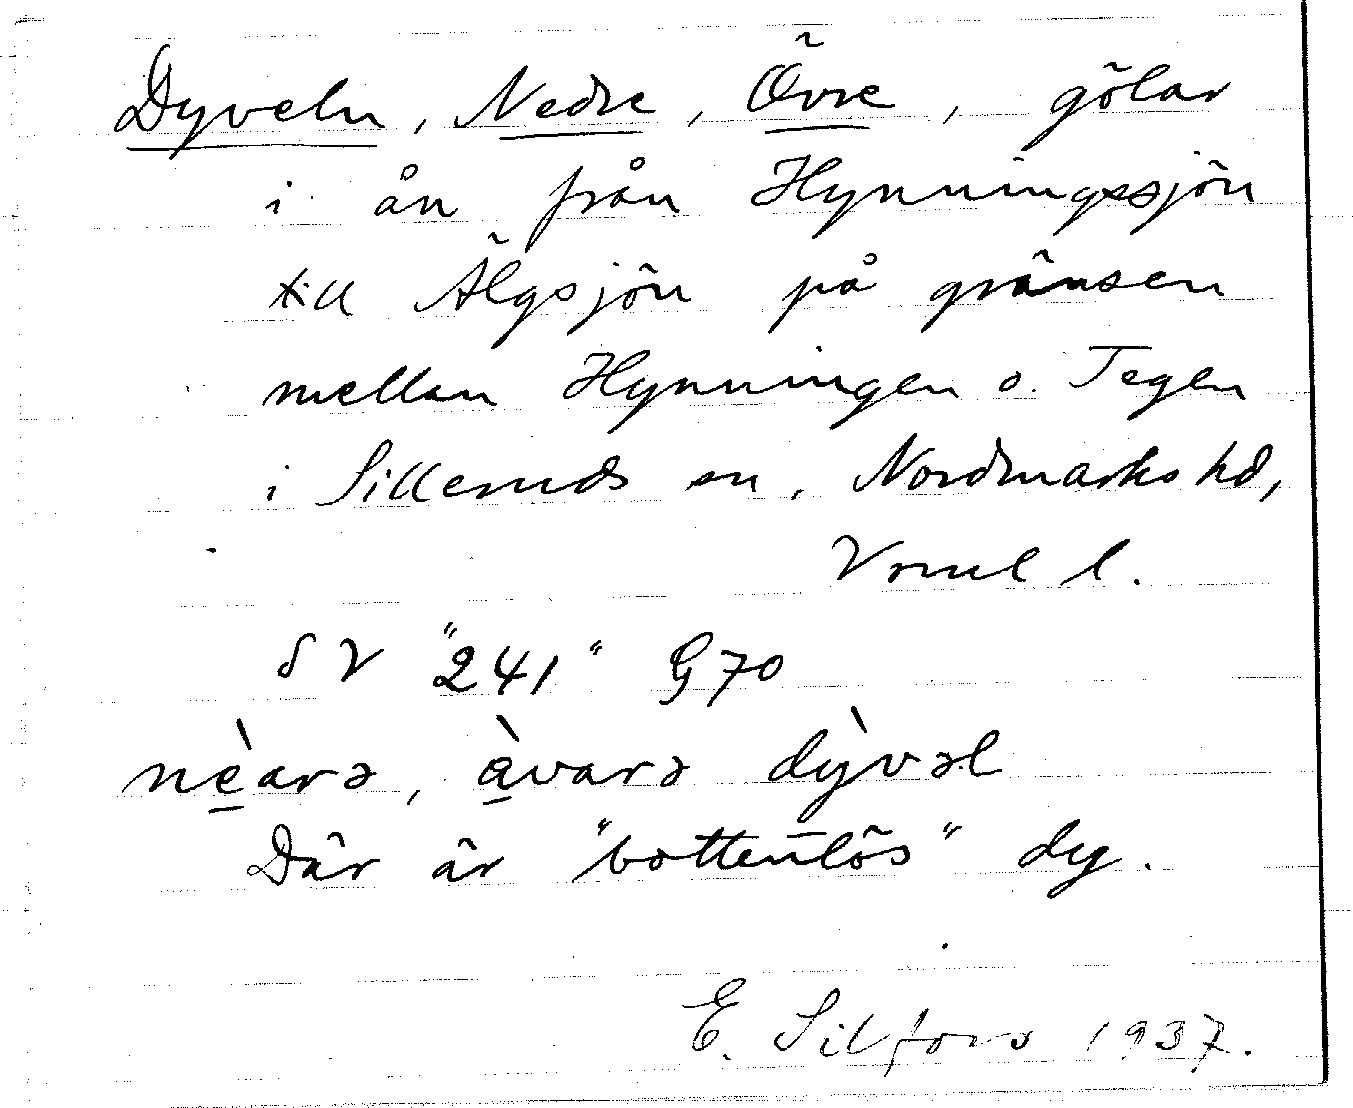 Dyveln, Nedre, Övre, gölar
i ån från Hynningssjön
till Älgsjön på gränsen
mellan Hynningen o. Tegen
i Silleruds sn, Nordmarks hd,
Vrml l.
SV "241" G70
nè̱arə, à̱varə dỳvəl
Där är "bottenlös" dy.
E. Silfors 1937.